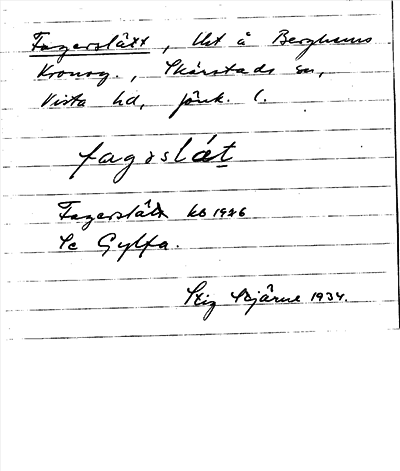 Fagerslätt, lht å Berghems
Kronog., Skärstads sn,
Vista hd, Jönk. l.
fagərslæt
Fagerslätt kb 1946
Se Gylfa.
Stig Bjärne 1934.